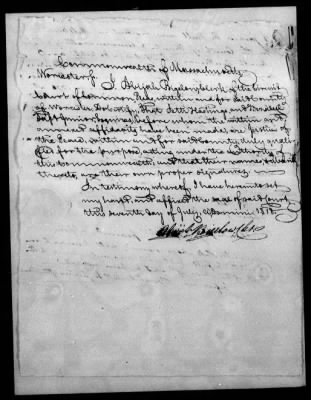 Commonwealth of Massachusetts
Worcester ss. I Abijah Bigelow, clerk of the Circuit
Court of Common Pleas, within and for said County
of Worcester, Do certify, that Seth Hastings and
Esqrs Junior, before whom the within and
annexed affidavits have been made, are Justices of
the Peace, within and for said County duly quali-
fied for the purpose, acting under the authority of
this Commonwealth, and that their names, subscribed
thereto, are their own proper signatures.
In testimony whereof, I have hereunto set
my hand, and affixed the seal of said Court
this seventh day of July, Domini 181
Abijah Bigelow, Clerk